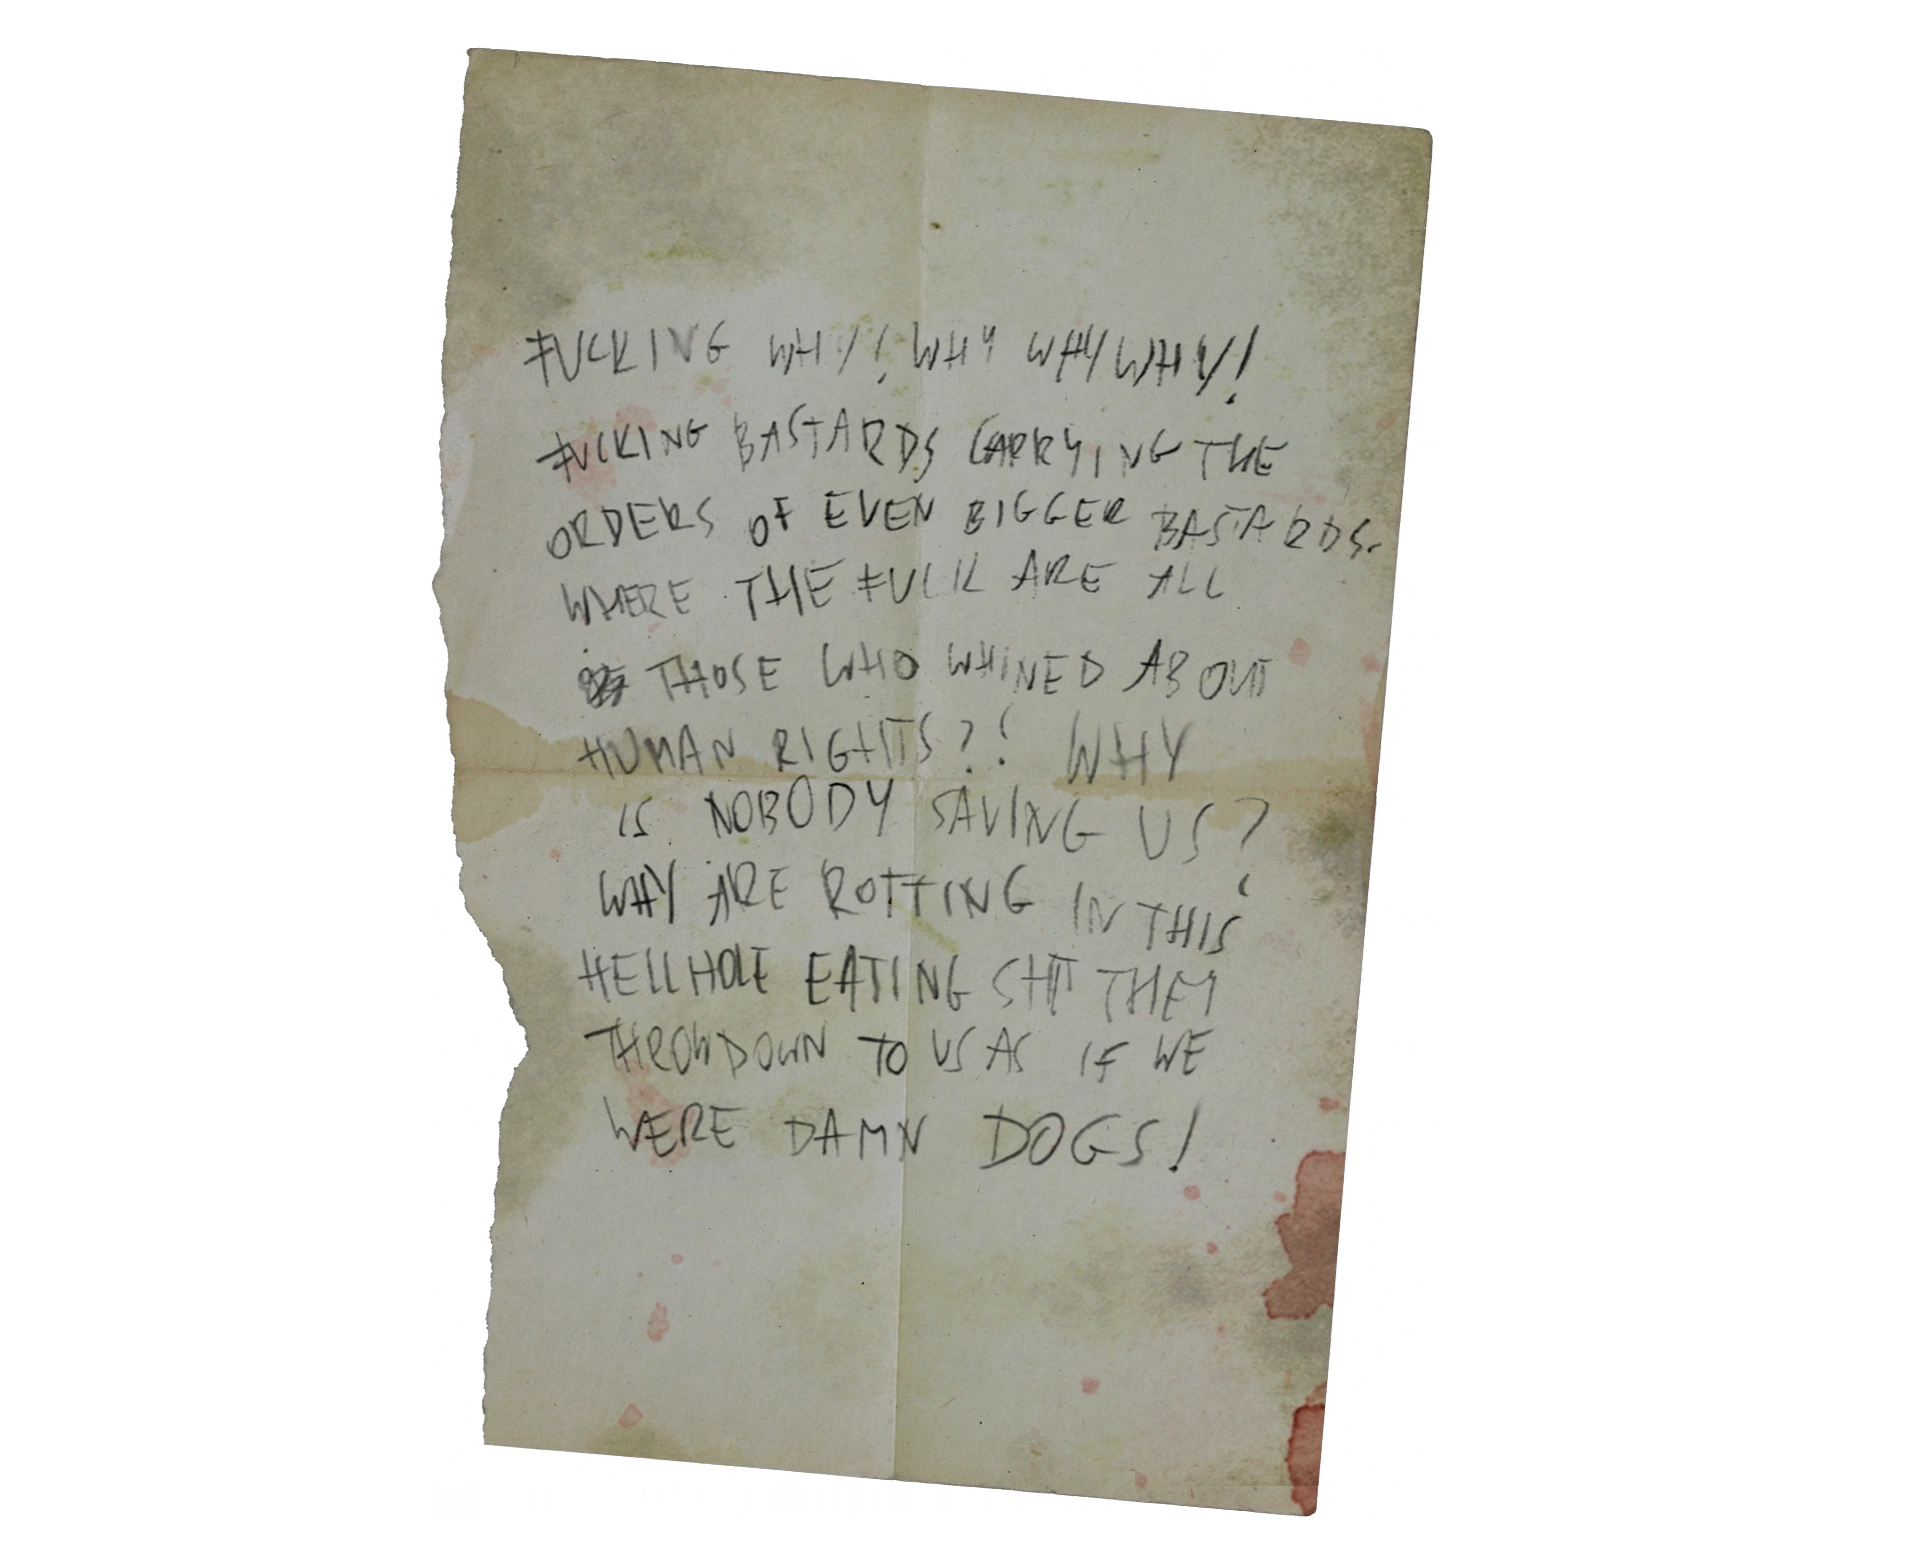 FUCKING WHY! WHY WHY WHY!
FUCKING BASTARDS CARRYING THE
ORDERS OF EVEN BIGGER BASTARDS.
WHERE THE FUCK ARE ALL
THOSE WHO WHINED ABOUT
HUMAN RIGHTS?! WHY
IS NOBODY SAVING US?
WHY ARE ROTTING IN THIS
HELLHOLE EATING SHIT THEY
THROW DOWN TO US AS IF WE
WERE DAMN DOGS!